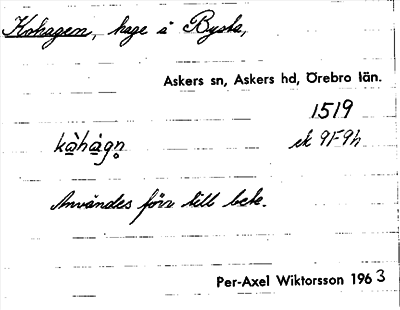 Kohagen, hage å Bysta,
Askers sn, Askers hd, Örebro län.
1519
kàhàgn̥ ek 9F9h
Användes förr till bete.
Per-Axel Wiktorsson 1963